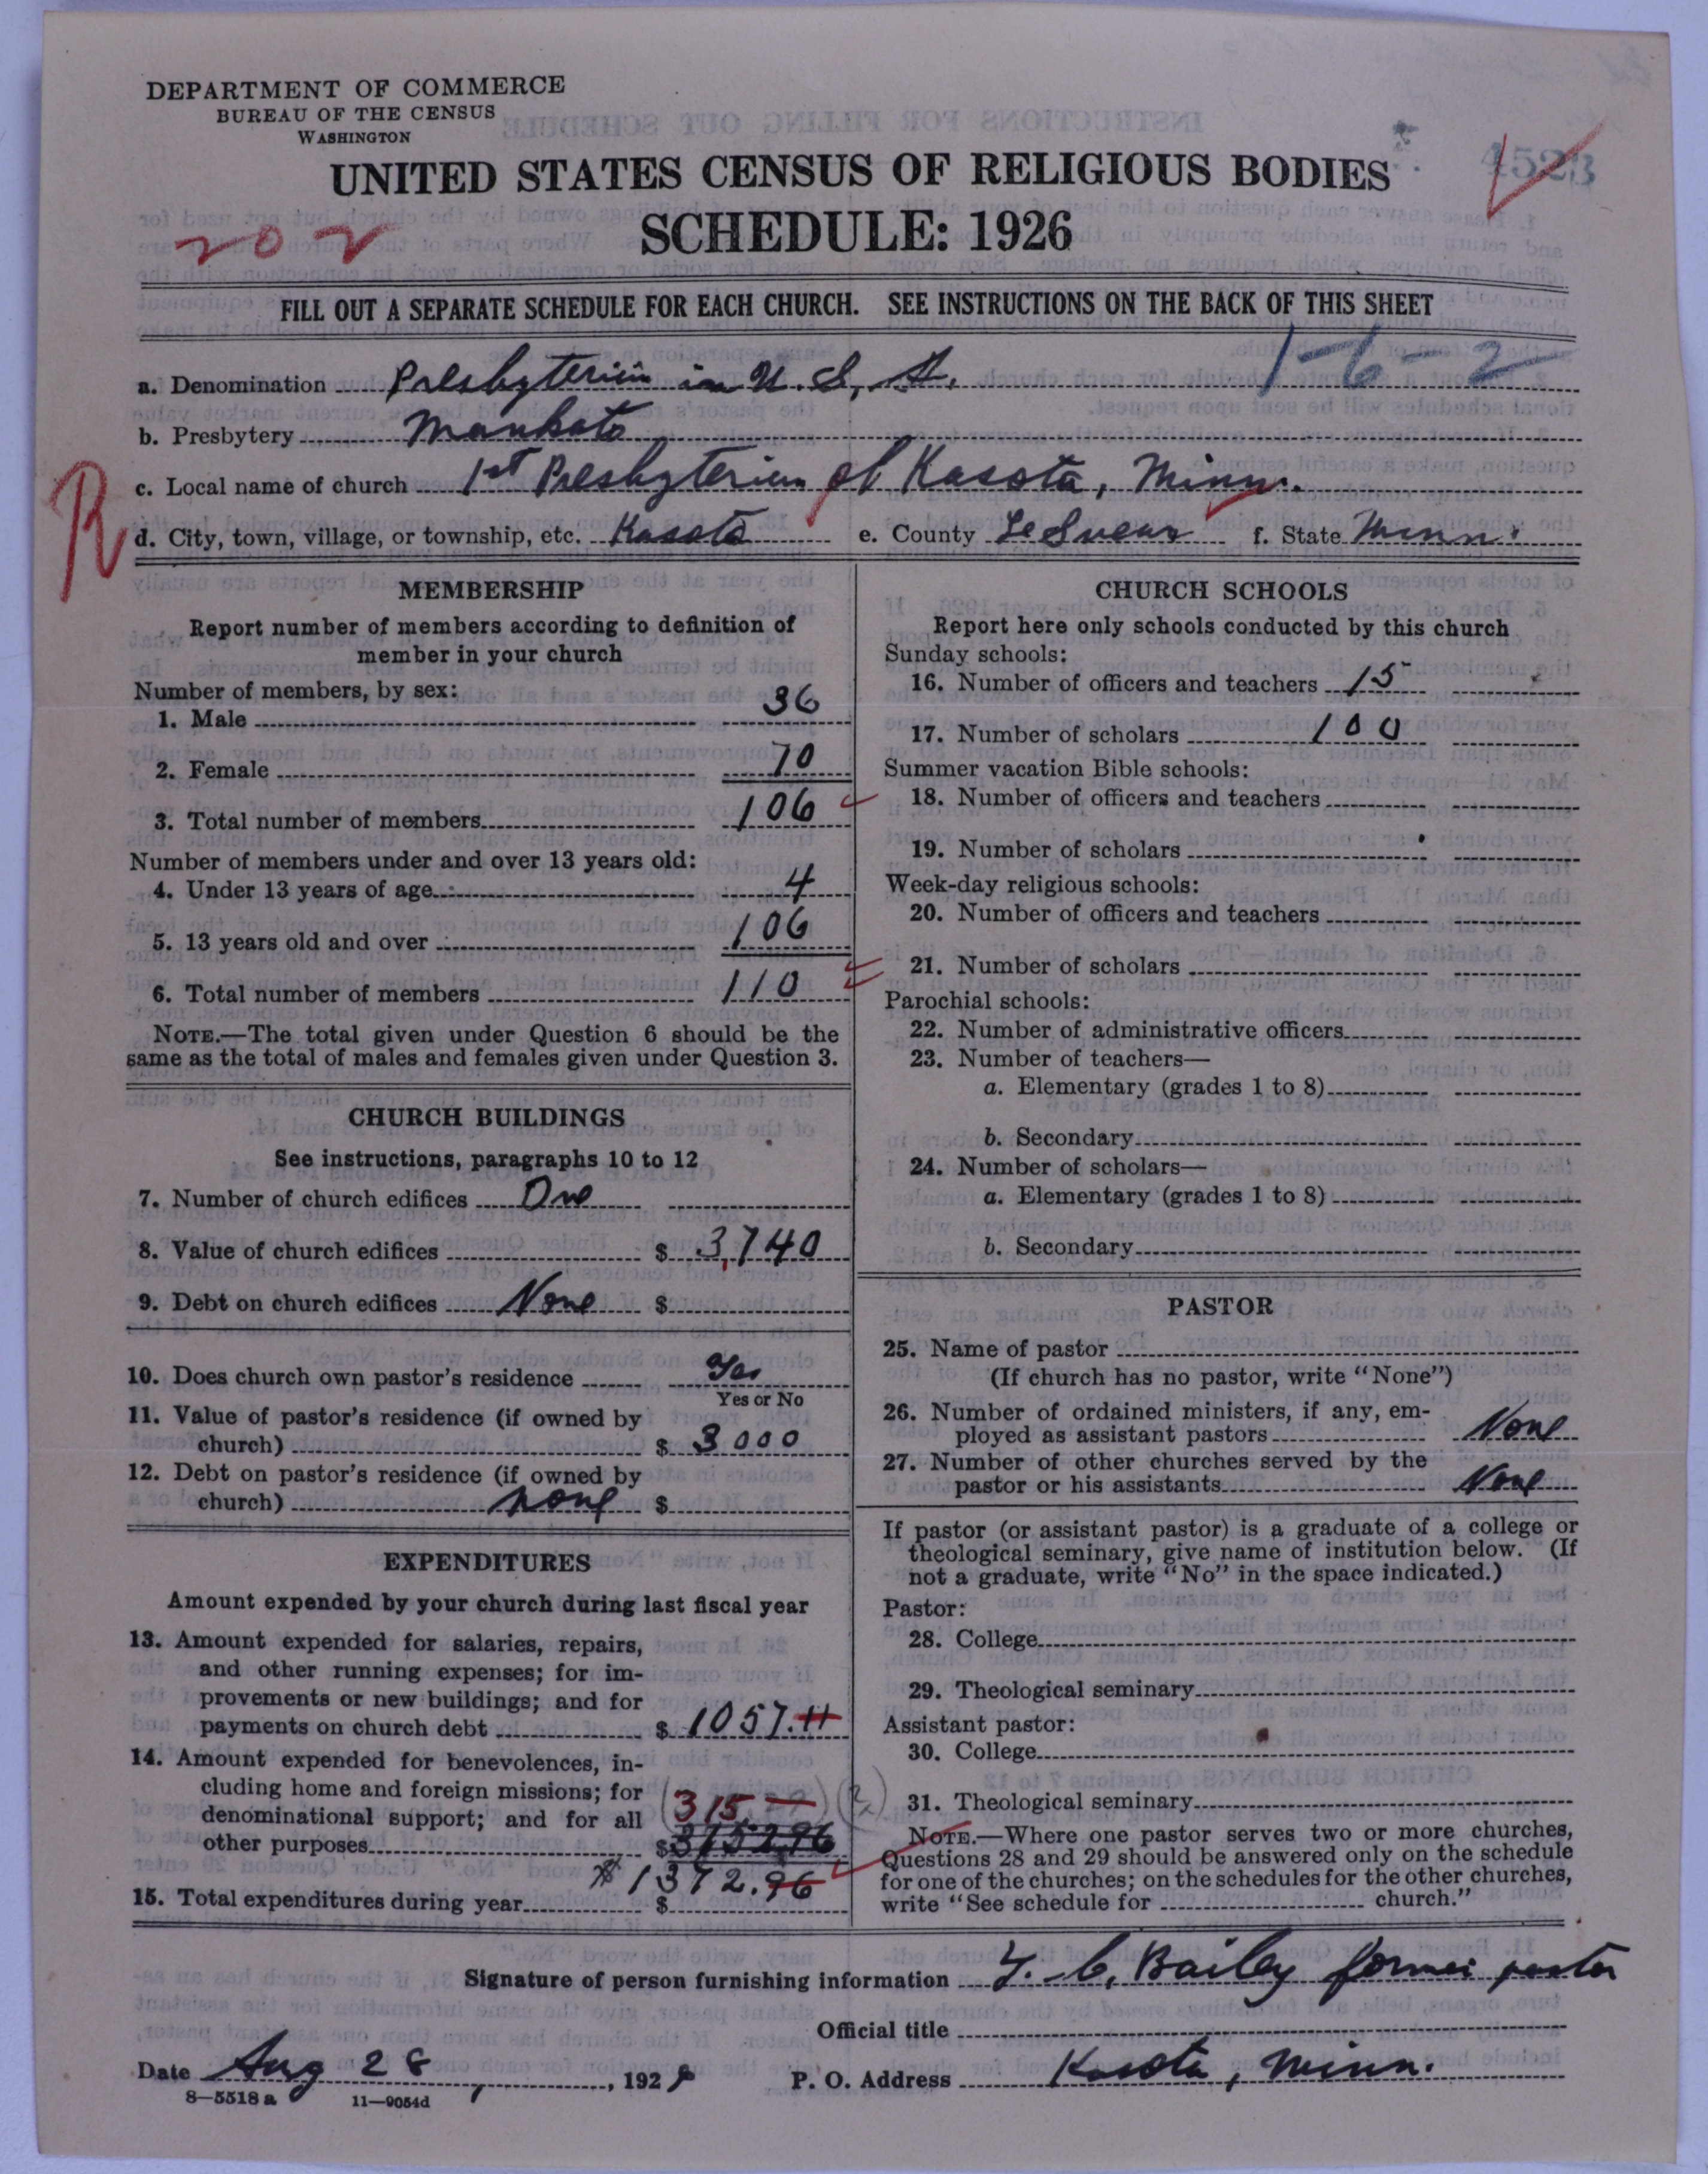 DEPARTMENT OF COMMERCE
BUREAU OF THE CENSUS
WASHINGTON
4523
UNITED STATES CENSUS OF RELIGIOUS BODIES
202
SCHEDULE: 1926
FILL OUT A SEPARATE SCHEDULE FOR EACH CHURCH. SEE INSTRUCTIONS ON THE BACK OF THIS SHEET
1-6-2
a. Denomination Presbyterian in U. S. A.
b. Presbytery Mankato
R
c. Local name of church 1st Presbyterian of Kasota, Minn.
d. City, town, village, or township, etc. Kasota e. County Le Sueur f. State Minn.
MEMBERSHIP
Report number of members according to definition of
member in your church
Number of members, by sex:
1. Male 36
2. Female 70
3. Total number of members 106
Number of members under and over 13 years old:
4. Under 13 years of age 4
5. 13 years old and over 106
6. Total number of members 110
NOTE.—The total given under Question 6 should be the
same as the total of males and females given under Question 3.
CHURCH BUILDINGS
See instructions, paragraphs 10 to 12
7. Number of church edifices One
8. Value of church edifices $ 3,740
9. Debt on church edifices None $
10. Does church own pastor's residence Yes
Yes or No
11. Value of pastor's residence (if owned by
church) $ 3000
12. Debt on pastor's residence (if owned by
church) none $
EXPENDITURES
Amount expended by your church during last fiscal year
13. Amount expended for salaries, repairs,
and other running expenses; for im-
provements or new buildings; and for
payments on church debt $ 1057.11
14. Amount expended for benevolences, in-
cluding home and foreign missions; for
denominational support; and for all
315 —
other purposes $
$1372.96
15. Total expenditures during year $
CHURCH SCHOOLS
Report here only schools conducted by this church
Sunday schools:
16. Number of officers and teachers 15
17. Number of scholars 100
Summer vacation Bible schools:
18. Number of officers and teachers
19. Number of scholars
Week-day religious schools:
20. Number of officers and teachers
21. Number of scholars
Parochial schools:
22. Number of administrative officers
23. Number of teachers—
a. Elementary (grades 1 to 8)
b. Secondary
24. Number of scholars—
a. Elementary (grades 1 to 8)
b. Secondary
PASTOR
25. Name of pastor
(If church has no pastor, write "None")
26. Number of ordained ministers, if any, em-
ployed as assistant pastors None
27. Number of other churches served by the
pastor or his assistants None
If pastor (or assistant pastor) is a graduate of a college or
theological seminary, give name of institution below. (If
not a graduate, write "No" in the space indicated.)
Pastor:
28. College
29. Theological seminary
Assistant pastor:
30. College
31. Theological seminary
NOTE.—Where one pastor serves two or more churches,
Questions 28 and 29 should be answered only on the schedule
for one of the churches; on the schedules for the other churches,
write "See schedule for church."
Signature of person furnishing information Bailey former pastor
Official title
Date Aug 28, 192
P. O. Address Kasota, Minn.
8—5518 a 11—9054d